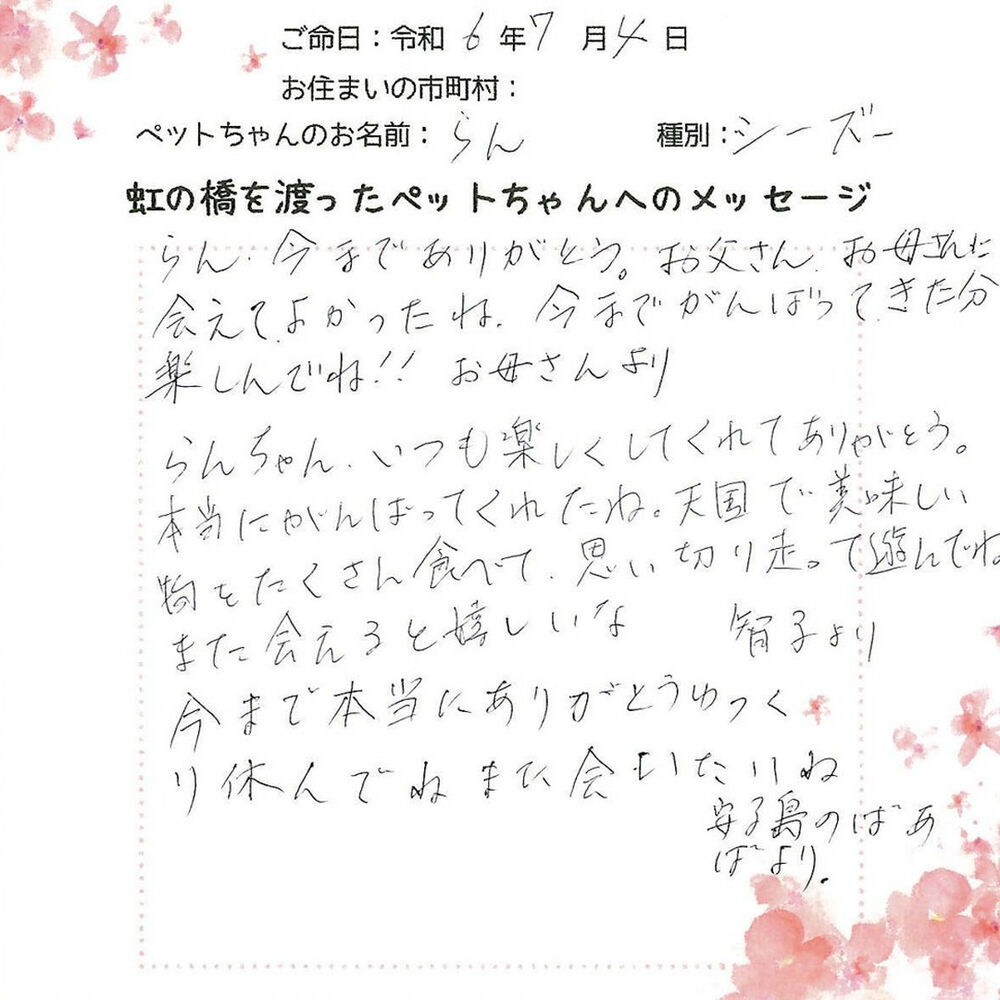 ご命日：令和 6 年 7 月 4 日
お住まいの市町村：
ペットちゃんのお名前：らん 種別：シーズー
虹の橋を渡ったペットちゃんへのメッセージ
らん、今までありがとう。お父さん、お母さんに
会えてよかったね、今までがんばってきた分
楽しんでね!! お母さんより
らんちゃん、いつも楽しくしてくれてありがとう。
本当にがんばってくれたね。天国で美味しい
物をたくさん食べて、思い切り走って遊んでね。
また会えると嬉しいな 智子より
今まで本当にありがとうゆっく
り休んでねまた会いたいね
安子島のばあ
ばより。